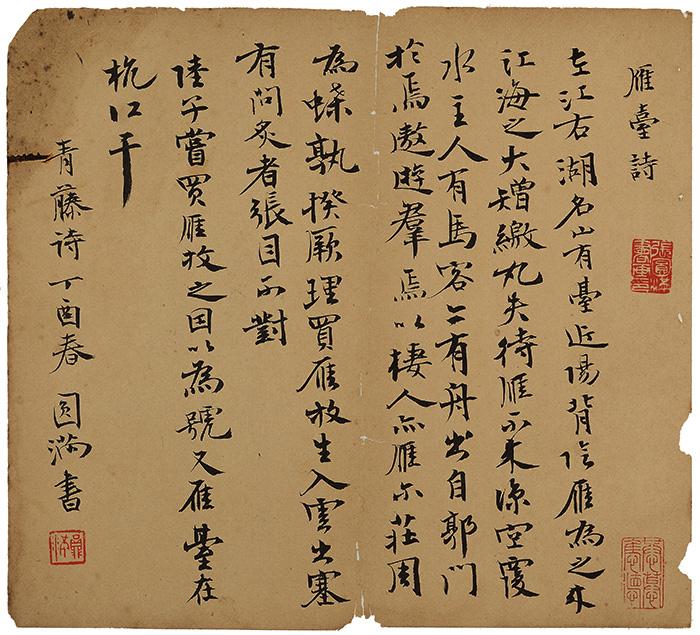 雁臺詩
左江右湖名山有臺近陽背陰雁為之來
江海之大矰繳丸矢待雁不來空覆
水主人有馬客亦有舟出自郭門
於焉遨遊羣焉以棲人亦雁尒莊周
為蝶孰揆厥理買雁放生入雲出塞
有問炙者張目不對
陸子嘗買雁放之因以為號又雁臺在
杭江干
青藤诗丁酉春圓满書